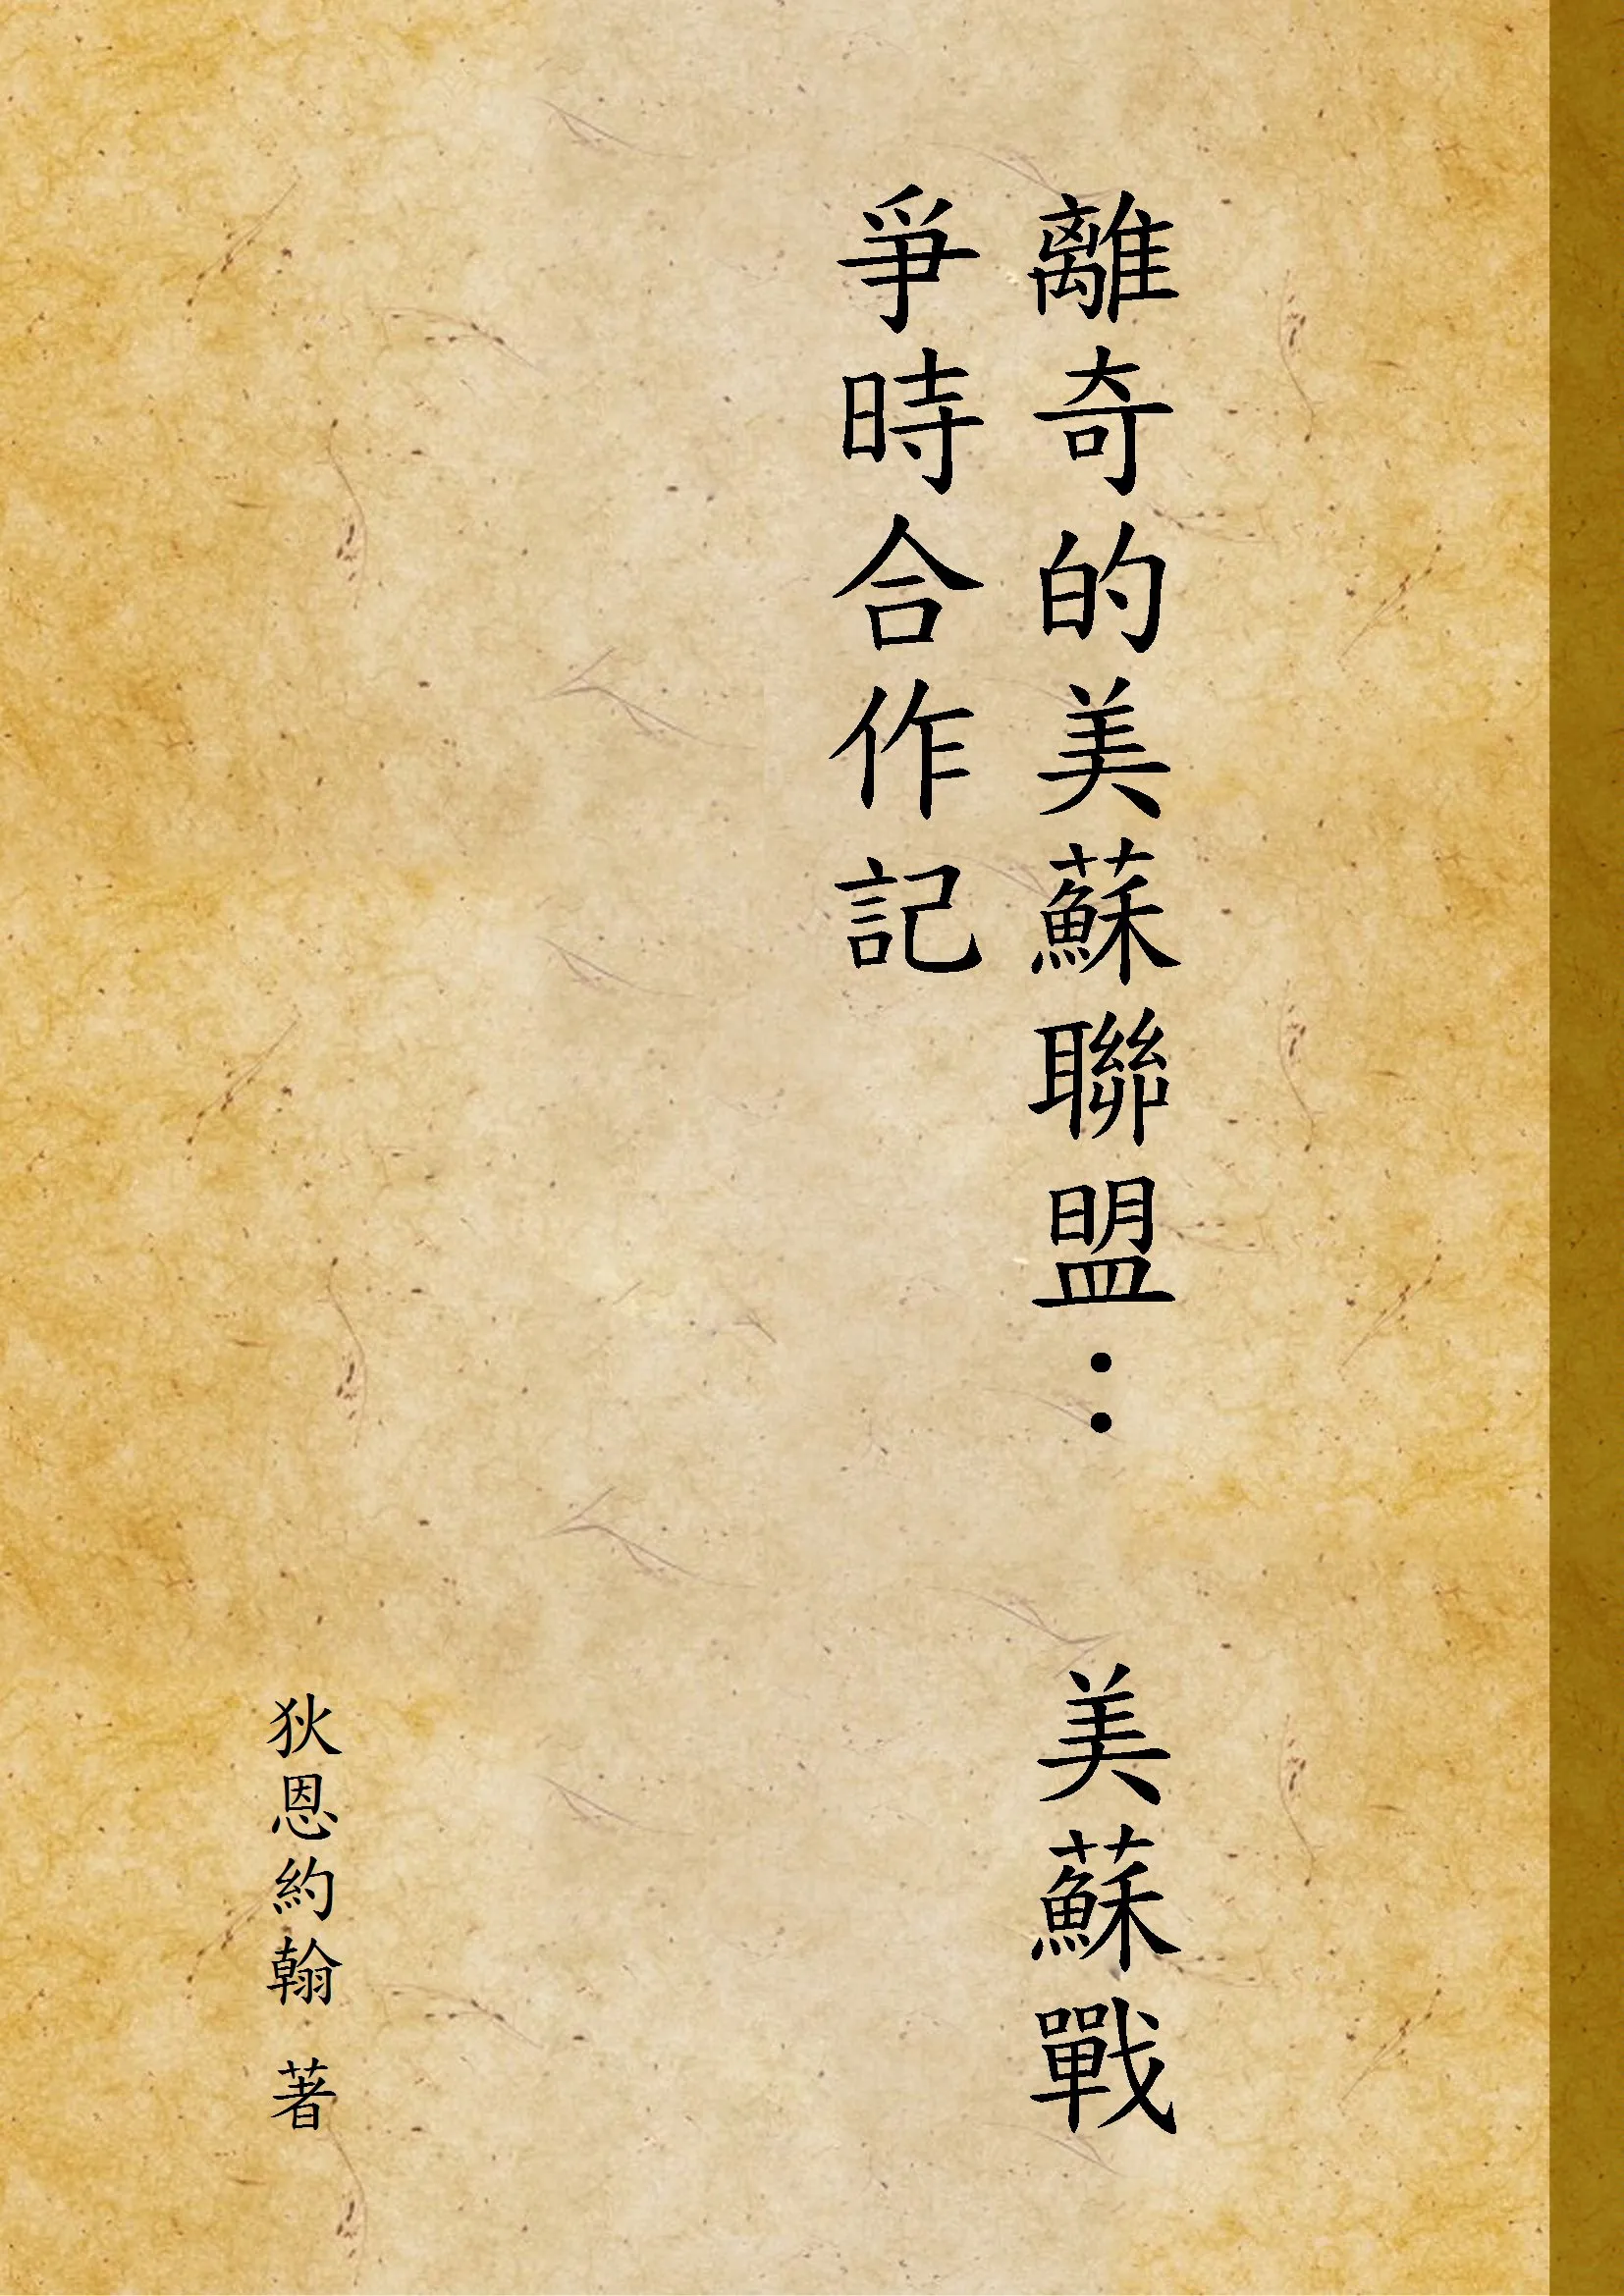 離奇的美蘇聯盟： 美蘇戰
爭時合作記
狄恩約翰 著